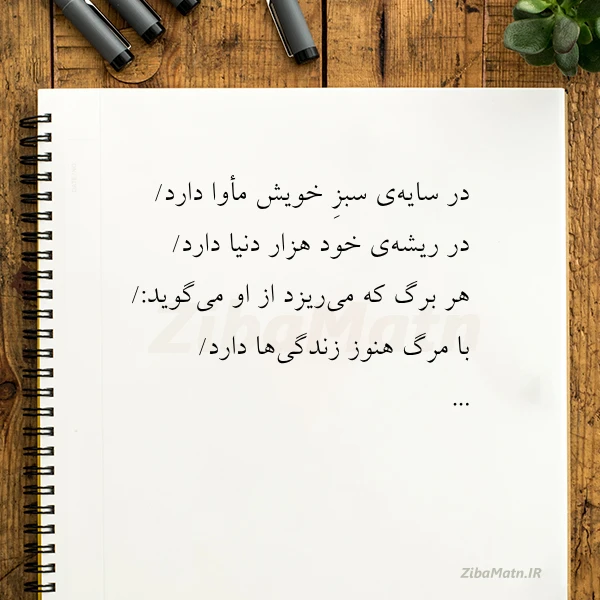 در سایه‌ی سبزِ خویش مأوا دارد/
در ریشه‌ی خود هزار دنیا دارد/
هر برگ که می‌ریزد از او می‌گوید:/
با مرگ هنوز زندگی‌ها دارد/
...
ZibaMatn
ZibaMatn.IR